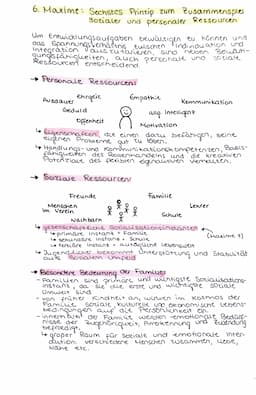 6. Maxime: Sechstes Prinzip zum Zusammenspiel
Sozialer und personaler Ressourcen
Um Entwicklungsaufgaben bewältigen zu können und
das Spannungsverhältnis zwischen Individuation und
Integration auszutarieren, sind neben Bewält-
igungsfähigkeiten, auch personale und soziale
Ressourcen entscheidend.
→ Personale Ressourcen:
Ehrgeiz Empathie
Ausdauer Kommunikation
Geduld Intelligenz
Offenheit Motivation
↳ Eigenschaften, die einen dazu befähigen, seine
eignen Probleme gut zu lösen.
↳ Handlungs- und Kommunikationskompetenzen, Basis-
fähigkeiten des Rosenmandeins und die kreativen
Potenziale des
→ Soziale Ressourcen
Freunde Familie
Menschen Lehrer
im Verein
Nachbarn Schule
↳ gesellschaftliche Sozialisationsinstanzen
↳ primäre Instanz = Familie (Maxime 7)
↳ sekundäre Instanz = Schule
↳ tertiäre Instanz =
↳ Jugendlicher bekommt Unterstützung und Stabilität
aus sozialem Umfeld
→ Besondere Bedeutung der Familie:
- Familien sind primäre und wichtigste Sozialisations-
instanz, da sie die erste und wichtigste soziale
Umwelt sind
- von früher Kindheit an, wirken im Kosmos der
Familie soziale, kulturelle und ökonomische Lebens-
bedingungen auf die Persönlichkeit ein.
- innerhalb der Familie werden emotionale Bedürf-
nisse der Zugehörigkeit, Anerkennung und Zuwendung
befriedigt.
↳ großer Raum für soziale und emotionale Inten-
dation verschiedene Menschen zusammen, Liebe,
Nähe etc.